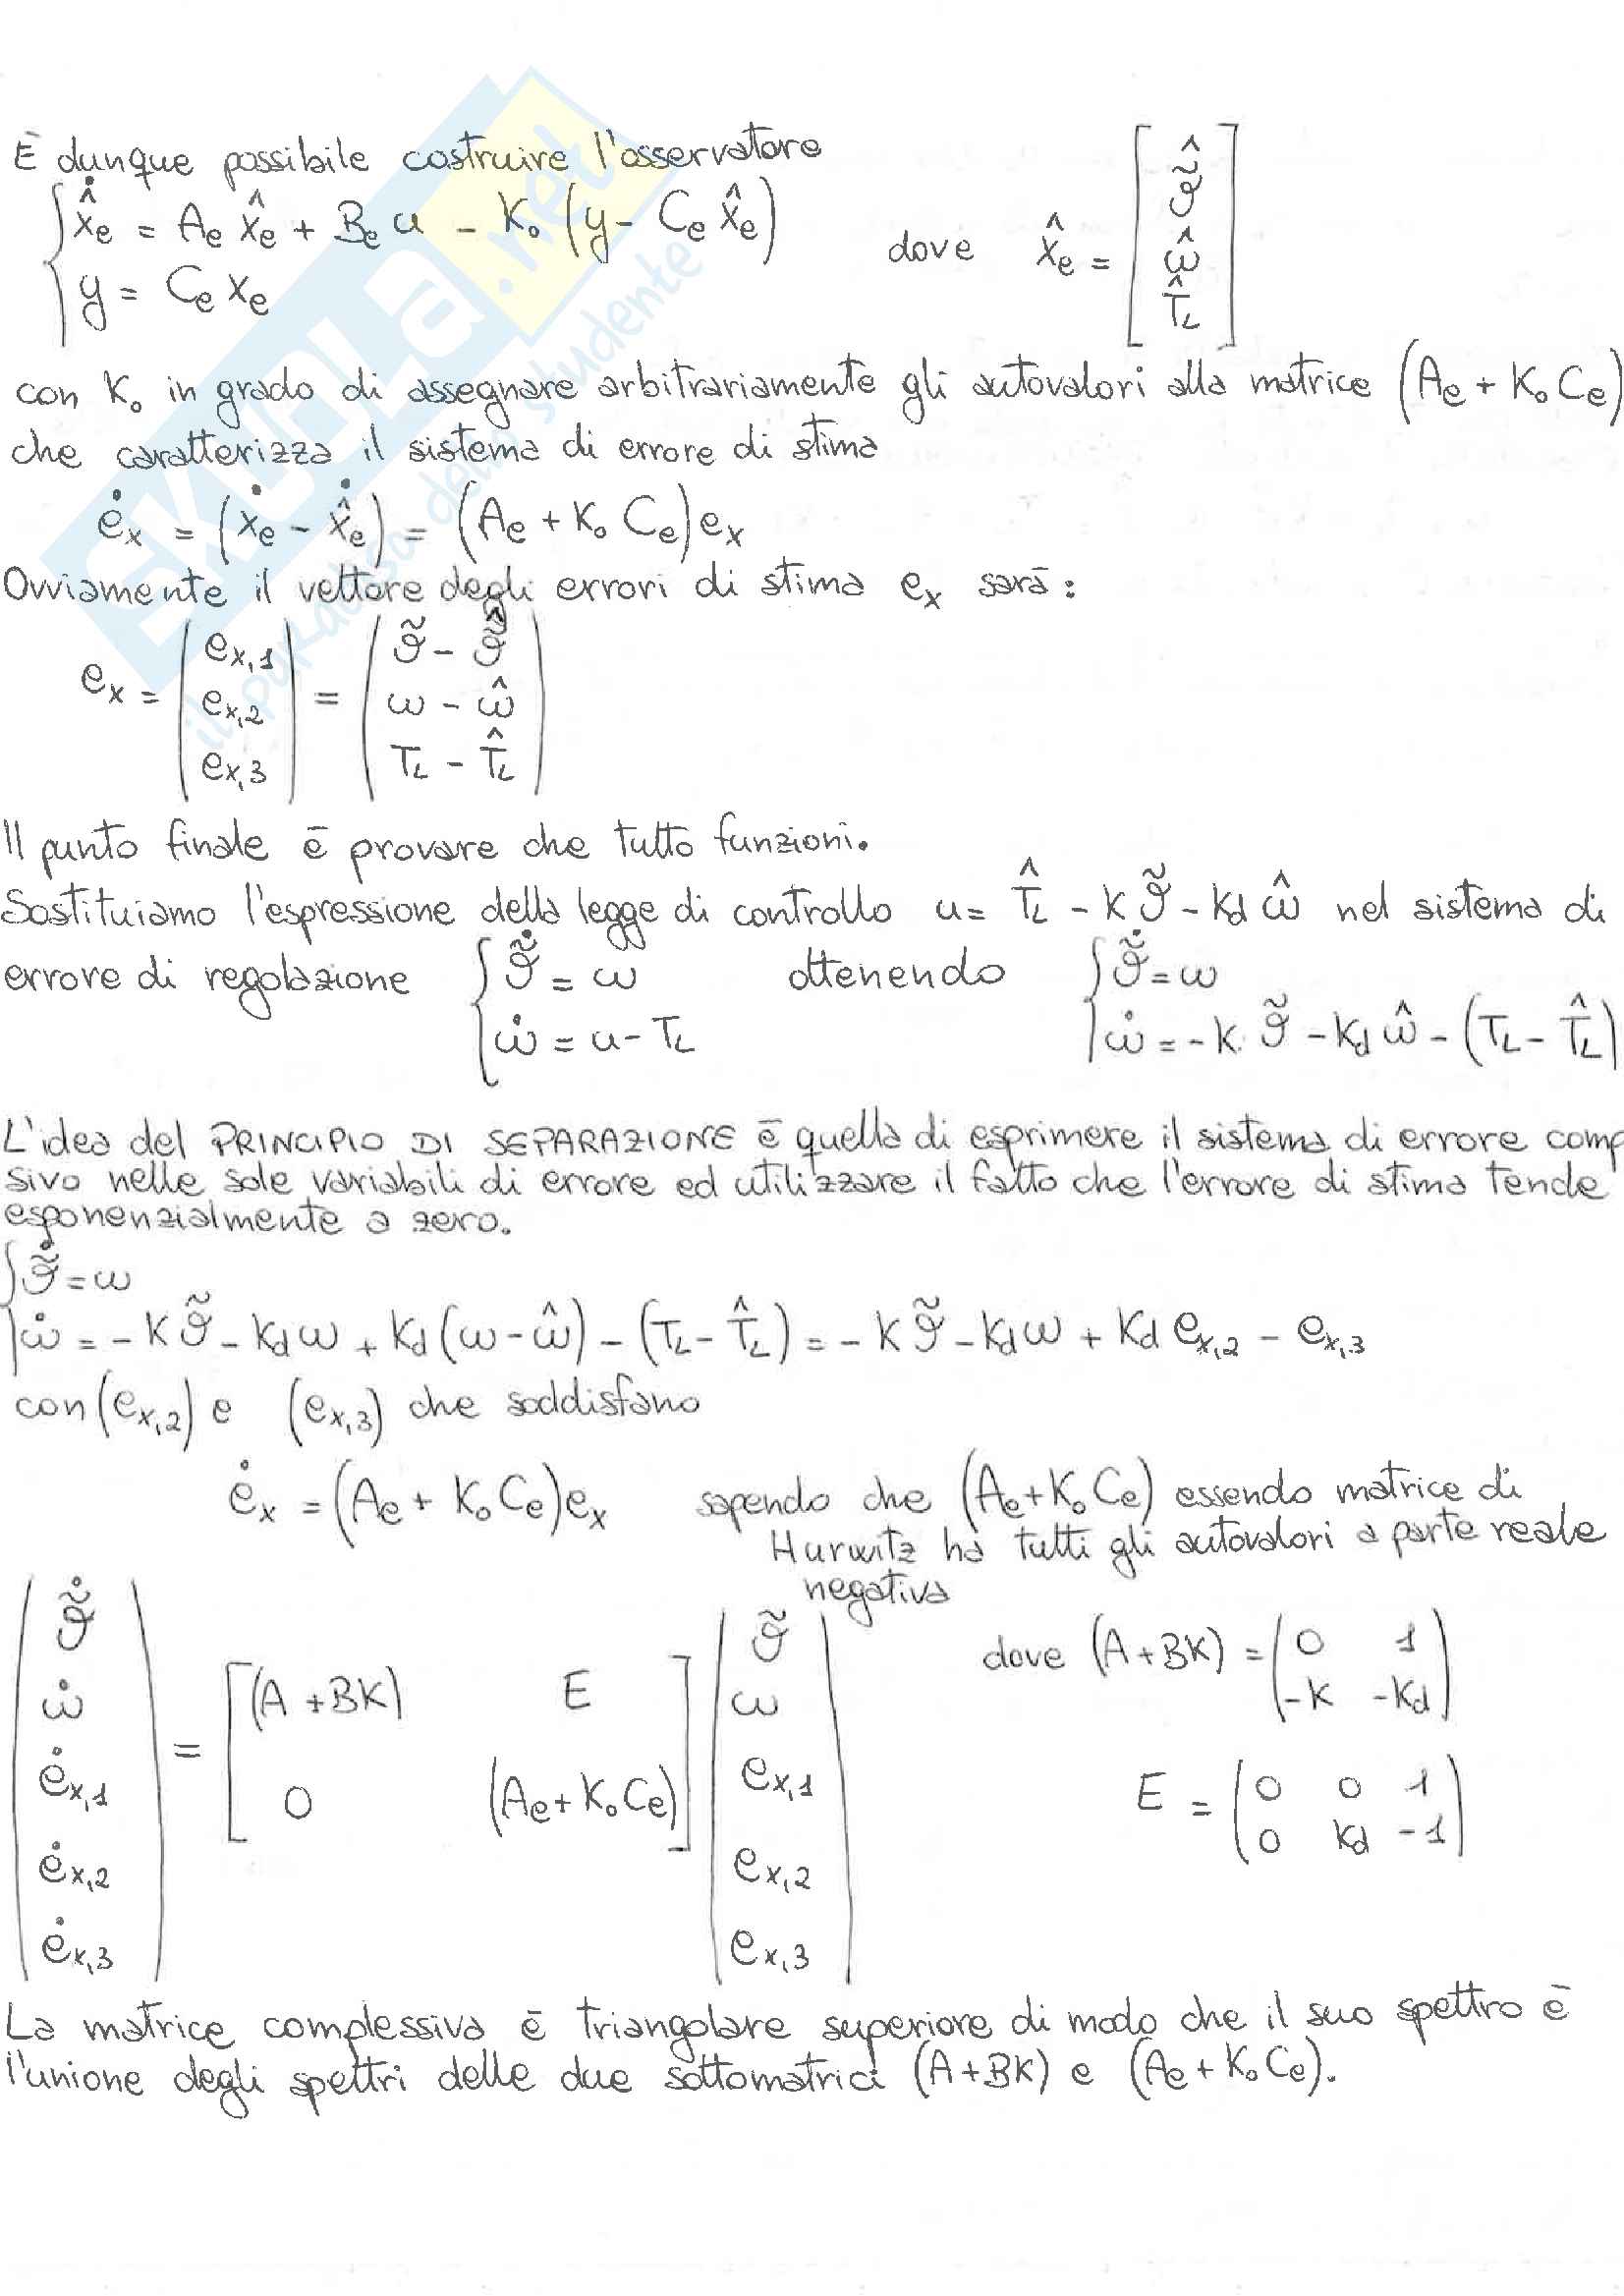 È dunque possibile costruire l'osservatore
{ x̂̇e = Ae x̂e + Be u - Ko (y - Ce x̂e)
{ y = Ce xe
dove x̂e = [ ϑ̃̂ ; ω̂ ; T̂L ]
con Ko in grado di assegnare arbitrariamente gli autovalori alla matrice (Ae + Ko Ce)
che caratterizza il sistema di errore di stima
ėx = (ẋe - x̂̇e) = (Ae + Ko Ce) ex
Ovviamente il vettore degli errori di stima ex sarà:
ex = ( ex,1 ; ex,2 ; ex,3 ) = ( ϑ̃ - ϑ̃̂ ; ω - ω̂ ; TL - T̂L )
Il punto finale è provare che tutto funzioni.
Sostituiamo l'espressione della legge di controllo u = T̂L - K ϑ̃ - Kd ω̂ nel sistema di
errore di regolazione { ϑ̃̇ = ω ; ω̇ = u - TL ottenendo { ϑ̃̇ = ω ; ω̇ = -K ϑ̃ - Kd ω̂ - (TL - T̂L)
L'idea del PRINCIPIO DI SEPARAZIONE è quella di esprimere il sistema di errore comp
sivo nelle sole variabili di errore ed utilizzare il fatto che l'errore di stima tende
esponenzialmente a zero.
{ ϑ̃̇ = ω
{ ω̇ = -K ϑ̃ - Kd ω + Kd (ω - ω̂) - (TL - T̂L) = -K ϑ̃ - Kd ω + Kd ex,2 - ex,3
con (ex,2) e (ex,3) che soddisfano
ėx = (Ae + Ko Ce) ex sapendo che (Ae + Ko Ce) essendo matrice di
Hurwitz ha tutti gli autovalori a parte reale
negativa
( ϑ̃̇ ; ω̇ ; ėx,1 ; ėx,2 ; ėx,3 ) = [ (A + BK) E ; 0 (Ae + Ko Ce) ] ( ϑ̃ ; ω ; ex,1 ; ex,2 ; ex,3 )
dove (A + BK) = ( 0 1 ; -K -Kd )
E = ( 0 0 1 ; 0 Kd -1 )
La matrice complessiva è triangolare superiore di modo che il suo spettro è
l'unione degli spettri delle due sottomatrici (A + BK) e (Ae + Ko Ce).
SKUOLA.net
il paradiso dello studente